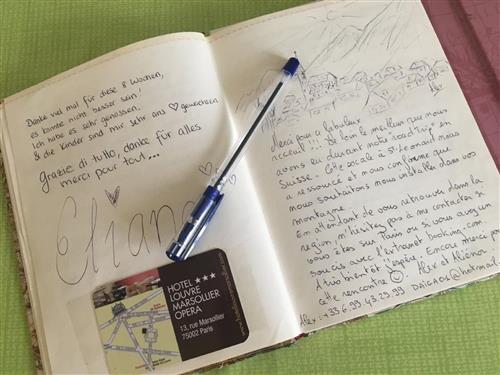 Danke viel mal für diese 8 Wochen,
es konnte nicht besser sein!
Ich habe es sehr genossen.
& die Kinder sind mir sehr ans ♡ gewachsen
Grazie di tutto, danke für alles
merci pour tout...
Eliane
HOTEL ★★★
LOUVRE
MARSOLLIER
OPERA
13, rue Marsollier
75002 Paris
Alex
Merci pour ce fabuleux
accueil!!! De loin le meilleur que nous
avons eu durant notre "road trip" en
Suisse. Cette escale à St-Léonard nous
a ressourcé et nous confirme que
nous souhaitons nous installer dans vos
montagne.
En attendant de vous retrouver dans la
région, n'hésitez pas à me contacter si
vous êtes sur Paris ou si vous avez un
soucis avec l'extranet Booking.com.
A très bientôt j'espère. Encore merci pour
cette rencontre ☺. Alex et Aliénor
Alex: +33 6.99.43.29.99
@hotmail